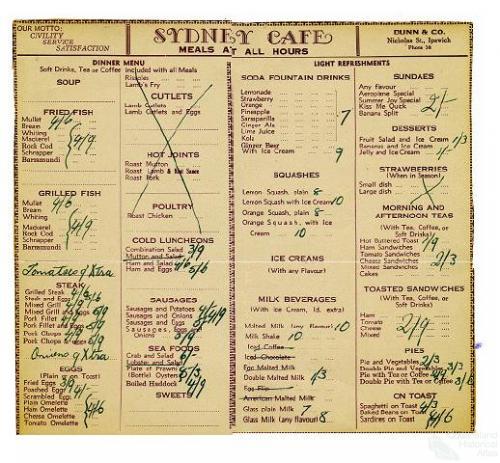 OUR MOTTO:
CIVILITY
SERVICE
SATISFACTION
SYDNEY CAFE
MEALS AT ALL HOURS
DUNN & CO.
Nicholas St., Ipswich
Phone 56
DINNER MENU
Soft Drinks, Tea or Coffee included with all Meals
SOUP
FRIED FISH
Mullet 4/6
Bream
Whiting
Mackerel
Rock Cod 4/9
Schnapper
Barramundi
GRILLED FISH
Mullet 4/6
Bream
Whiting
Mackerel 4/9
Rock Cod
Schrapper
Barramundi
Tomatoes 9d Xtra
STEAK
Grilled Steak 4/6
Steak and Eggs 5/6
Mixed Grill 4/9
Mixed Grill and Eggs 6/9
Pork Fillet
Pork Fillet and Eggs
Pork Chops
Pork Chops and Eggs
Onions 9d Xtra
EGGS
(Plain or on Toast)
Fried Eggs 3/9
Poached Eggs
Scrambled Eggs 4/-
Plain Omelette
Ham Omelette
Cheese Omelette 4/6
Tomato Omelette
Rissoles
Lamb's Fry
CUTLETS
Lamb Cutlets
Lamb Cutlets and Eggs
HOT JOINTS
Roast Mutton
Roast Lamb & Mint Sauce
Roast Pork
POULTRY
Roast Chicken
COLD LUNCHEONS
Combination Salad 3/9
Mutton and Salad
Ham and Salad 4/6
Ham and Eggs 5/6
SAUSAGES
Sausages and Potatoes 4/-
Sausages and Onions 4/9
Sausages and Eggs
Sausages, Eggs and
Onions 5/9
SEA FOODS
Crab and Salad 6/-
Lobster and Salad
Plate of Prawns
(Bottle) Oysters 5/3
Boiled Haddock 4/9
SWEETS
LIGHT REFRESHMENTS
SODA FOUNTAIN DRINKS
Lemonade
Strawberry
Orange
Pineapple
Sarsaparilla 7
Ginger Ale
Lime Juice
Kola
Ginger Beer
With Ice Cream 9
SQUASHES
Lemon Squash, plain 8
Lemon Squash with Ice Cream 10
Orange Squash, plain 8
Orange Squash, with Ice
Cream 10
ICE CREAMS
(With any Flavour)
MILK BEVERAGES
(With Ice Cream, 1d. extra)
Malted Milk (any flavour) 10
Milk Shake 10
Iced Coffee
Iced Chocolate
Egg Malted Milk
Double Malted Milk 1/3
Egg Flip
American Malted Milk
Glass plain Milk 7
Glass Milk (any flavour) 8
SUNDAES
Any flavour
Aeroplane Special
Summer Joy Special 2/-
Kiss Me Quick
Banana Split
DESSERTS
Fruit Salad and Ice Cream 1/3
Bananas and Ice Cream
Jelly and Ice Cream 1/-
STRAWBERRIES
(When in Season)
Small dish
Large dish
MORNING AND
AFTERNOON TEAS
(With Tea, Coffee, or
Soft Drinks)
Hot Buttered Toast 1/9
Ham Sandwiches
Tomato Sandwiches 2/3
Cheese Sandwiches
Mixed Sandwiches
Cakes
TOASTED SANDWICHES
(With Tea, Coffee, or
Soft Drinks)
Ham
Tomato 2/9
Cheese
Mixed
PIES
Pie and Vegetables 2/3
Double Pie and Vegetables 3/3
Pie with Tea or Coffee
Double Pie with Tea or Coffee
ON TOAST
Spaghetti on Toast 4/3
Baked Beans on Toast
Sardines on Toast 4/6
Queensland
Historical
Atlas